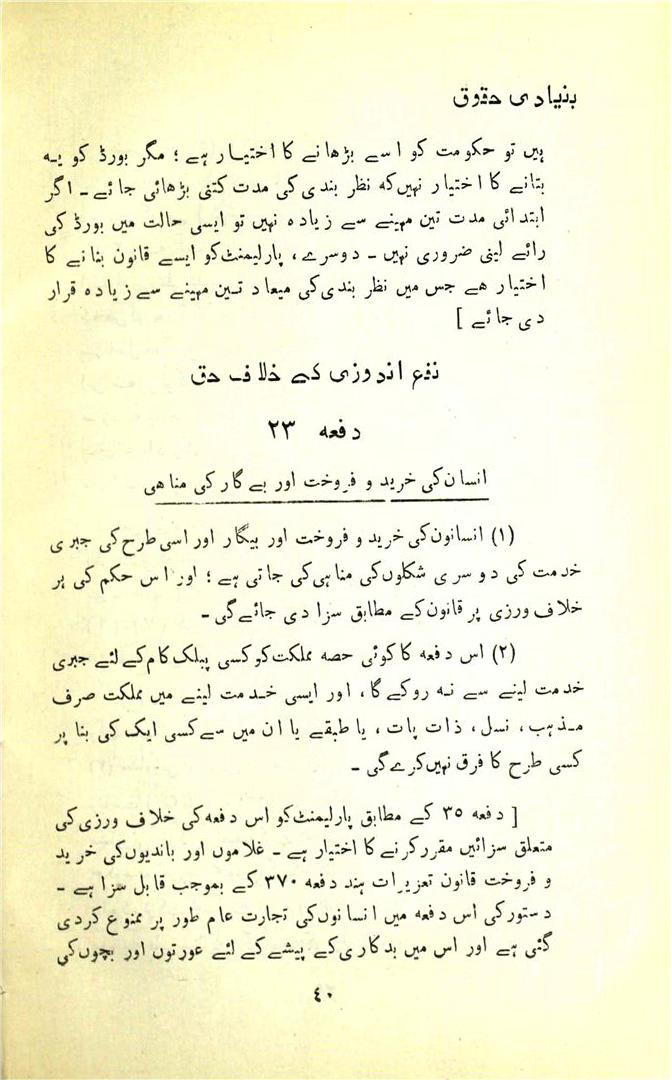 بنیادی حقوق
ہیں تو حکومت کو اسے بڑھانے کا اختیار ہے ؛ مگر بورڈ کو یہ
بتانے کا اختیار نہیں کہ نظر بندی کی مدت کتنی بڑھائی جائے ۔ اگر
ابتدائی مدت تین مہینے سے زیادہ نہیں تو ایسی حالت میں بورڈ کی
رائے لینی ضروری نہیں ۔ دوسرے ، پارلیمنٹ کو ایسے قانون بنانے کا
اختیار ھے جس میں نظر بندی کی میعاد تین مہینے سے زیادہ قرار
دی جائے ]
نفع اندوزی کے خلاف حق
دفعہ ۲۳
انسان کی خرید و فروخت اور بے گار کی مناھی
(۱) انسانون کی خرید و فروخت اور بیگار اور اسی طرح کی جبری
خدمت کی دوسری شکلوں کی مناہی کی جاتی ہے ؛ اور اس حکم کی ہر
خلاف ورزی پر قانون کے مطابق سزا دی جائے گی ۔
(۲) اس دفعہ کا کوئی حصہ مملکت کو کسی پبلک کام کے لئے جبری
خدمت لینے سے نہ روکے گا ، اور ایسی خدمت لینے میں مملکت صرف
مذہب ، نسل ، ذات پات ، یا طبقے یا ان میں سے کسی ایک کی بنا پر
کسی طرح کا فرق نہیں کرے گی ۔
[ دفعہ ۳۵ کے مطابق پارلیمنٹ کو اس دفعہ کی خلاف ورزی کی
متعلق سزائیں مقرر کرنے کا اختیار ہے ۔ غلاموں اور باندیوں کی خرید
و فروخت قانون تعزیرات ہند دفعہ ۳۷۰ کے بموجب قابل سزا ہے ۔
دستور کی اس دفعہ میں انسانوں کی تجارت عام طور پر ممنوع کردی
گئی ہے اور اس میں بدکاری کے پیشے کے لئے عورتوں اور بچوں کی
٤٠